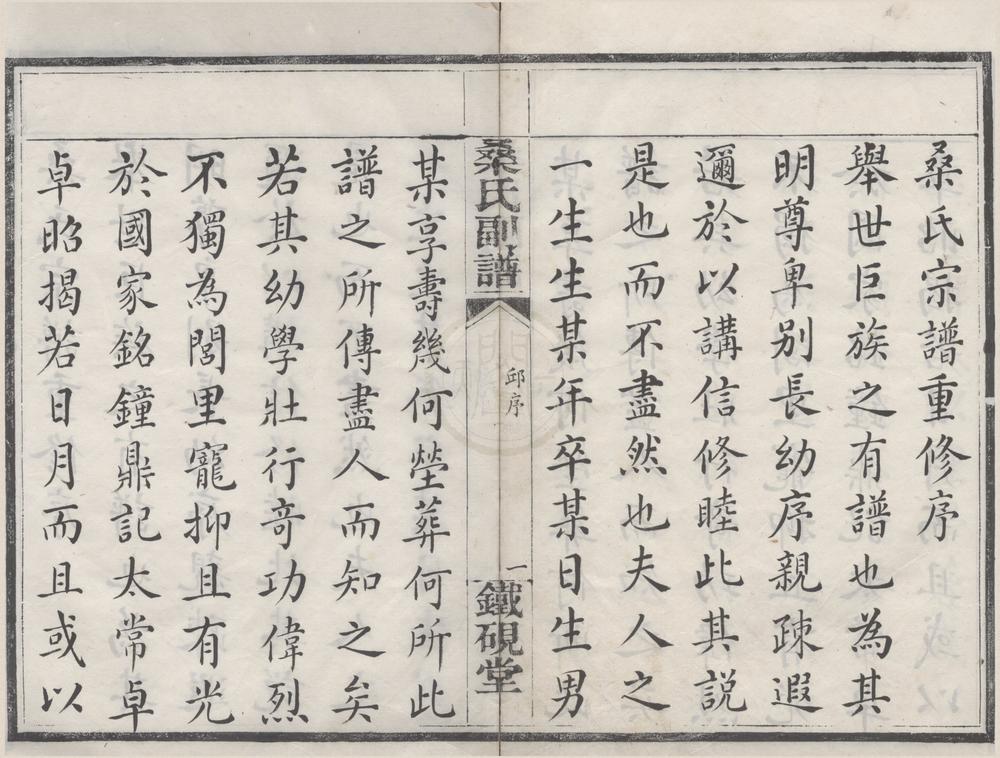 桑氏宗譜重修序
舉世巨族之有譜也為其
明尊卑别長幼序親疎遐
邇於以講信修睦此其説
是也而不盡然也夫人之
一生生某年卒某日生男
桑氏副譜
邱序
一
鐵硯堂
某享壽幾何塋葬何所此
譜之所傳盡人而知之矣
若其幼學壯行竒功偉烈
不獨為閭里寵抑且有光
於國家銘鐘鼎記太常卓
卓昭揭若日月而且或以